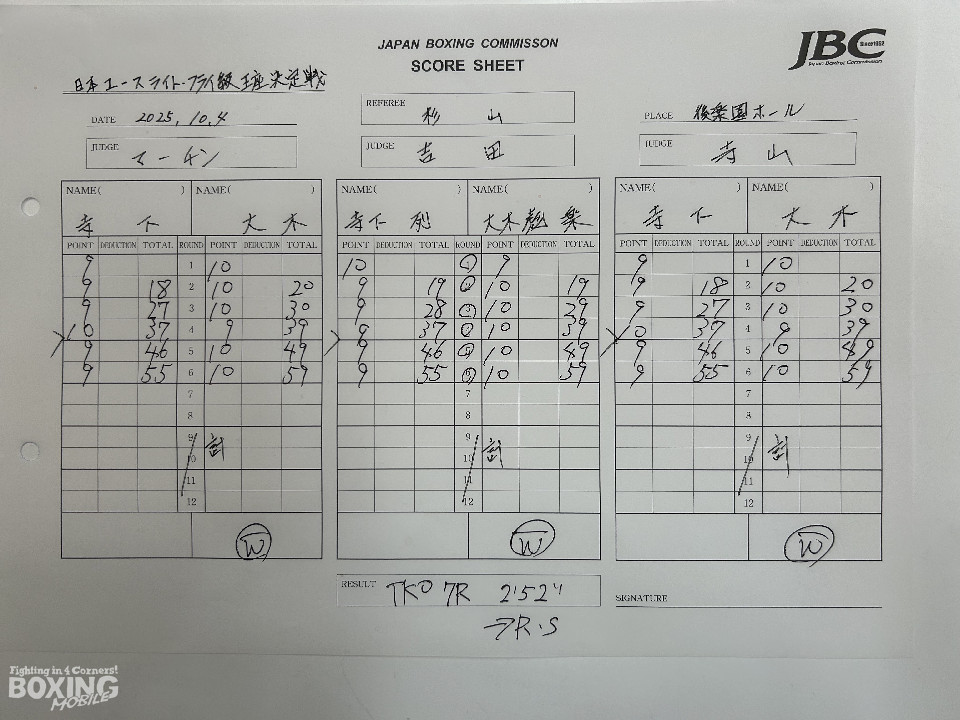 JAPAN BOXING COMMISSON
SCORE SHEET
JBC Since1952
Japan Boxing Commission
日本ユースライト・フライ級王座決定戦
DATE 2025, 10, 4
REFEREE 杉山
PLACE 後楽園ホール
JUDGE マーチン
JUDGE 吉田
JUDGE 寺山
NAME( ) NAME( )
寺下 大木
POINT DEDUCTION TOTAL ROUND POINT DEDUCTION TOTAL
9 1 10
9 18 2 10 20
9 27 3 10 30
10 37 4 9 39
9 46 5 10 49
9 55 6 10 59
7
8
9 計
10
11
12
W
NAME( ) NAME( )
寺下 列 大木彪楽
POINT DEDUCTION TOTAL ROUND POINT DEDUCTION TOTAL
10 1 9
9 19 2 10 19
9 28 3 10 29
9 37 4 10 39
9 46 5 10 49
9 55 6 10 59
7
8
9 計
10
11
12
W
NAME( ) NAME( )
寺下 大木
POINT DEDUCTION TOTAL ROUND POINT DEDUCTION TOTAL
9 1 10
9 18 2 10 20
9 27 3 10 30
10 37 4 9 39
9 46 5 10 49
9 55 6 10 59
7
8
9 計
10
11
12
W
RESULT TKO 7R 2'52"
→R.S
SIGNATURE
Fighting in 4 Corners!
BOXING
MOBILE